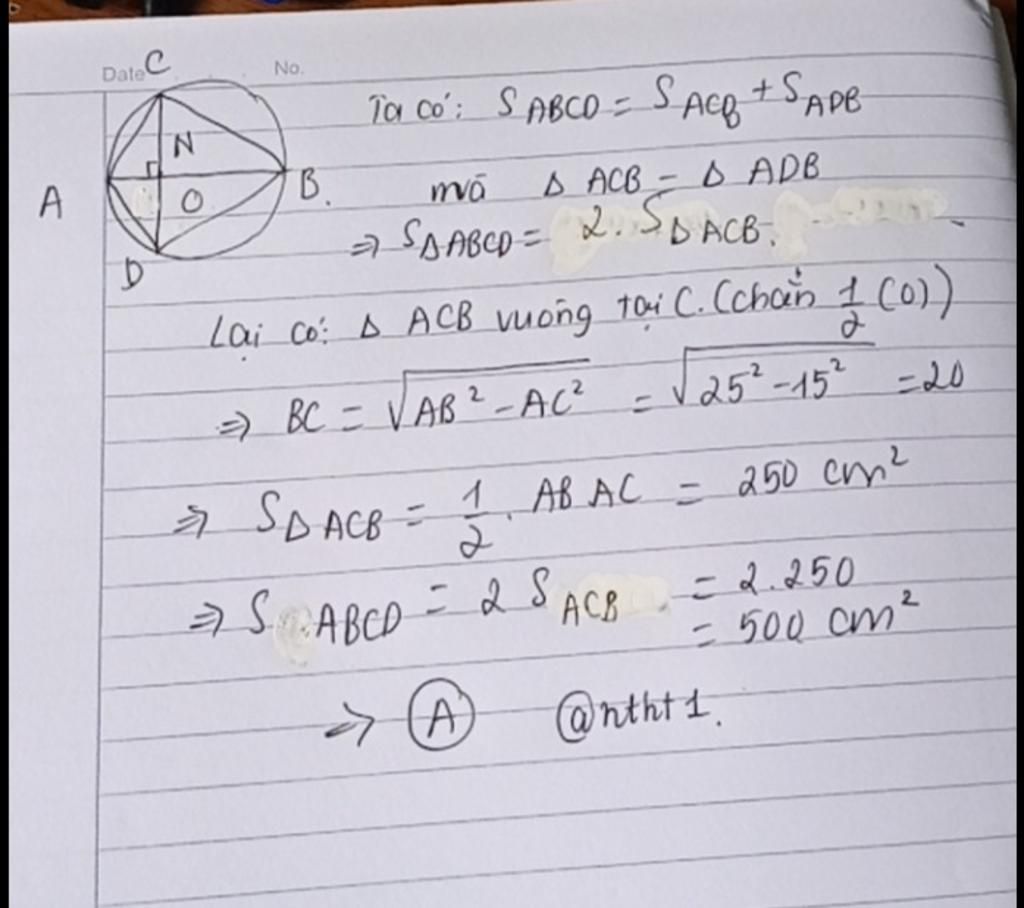 Date C No.
Ta có: S ABCD = S ACB + S ADB
N
A O B.
D
mà Δ ACB = Δ ADB
=> S Δ ABCD = 2. S Δ ACB.
Lại có: Δ ACB vuông tại C. (chắn 1/2 (O))
=> BC = √(AB² - AC²) = √(25² - 15²) = 20
=> S Δ ACB = 1/2 . AB AC = 250 cm²
=> S ABCD = 2 S ACB = 2.250
= 500 cm²
=> A @ntht1.